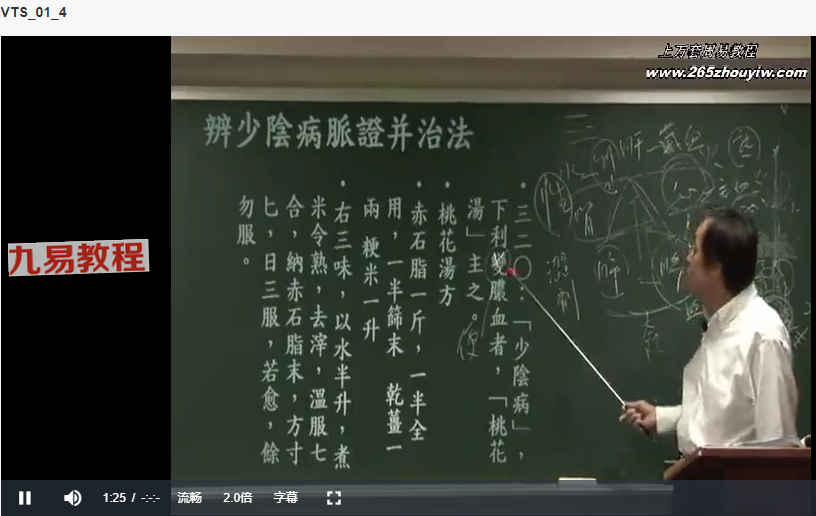 VTS_01_4
上万套周易教程
www.265zhouyiw.com
九易教程
辨少陰病脈證并治法
•三二〇：「少陰病」，
下利變膿血者，「桃花
湯」主之。
便
•桃花湯方
•赤石脂一斤，一半全
用，一半篩末 乾薑一
兩 粳米一升
•右三味，以水半升，煮
米令熟，去滓，溫服七
合，納赤石脂末，方寸
匕，日三服，若愈，餘
勿服。
1:25 / -:-:-
流畅
2.0倍
字幕